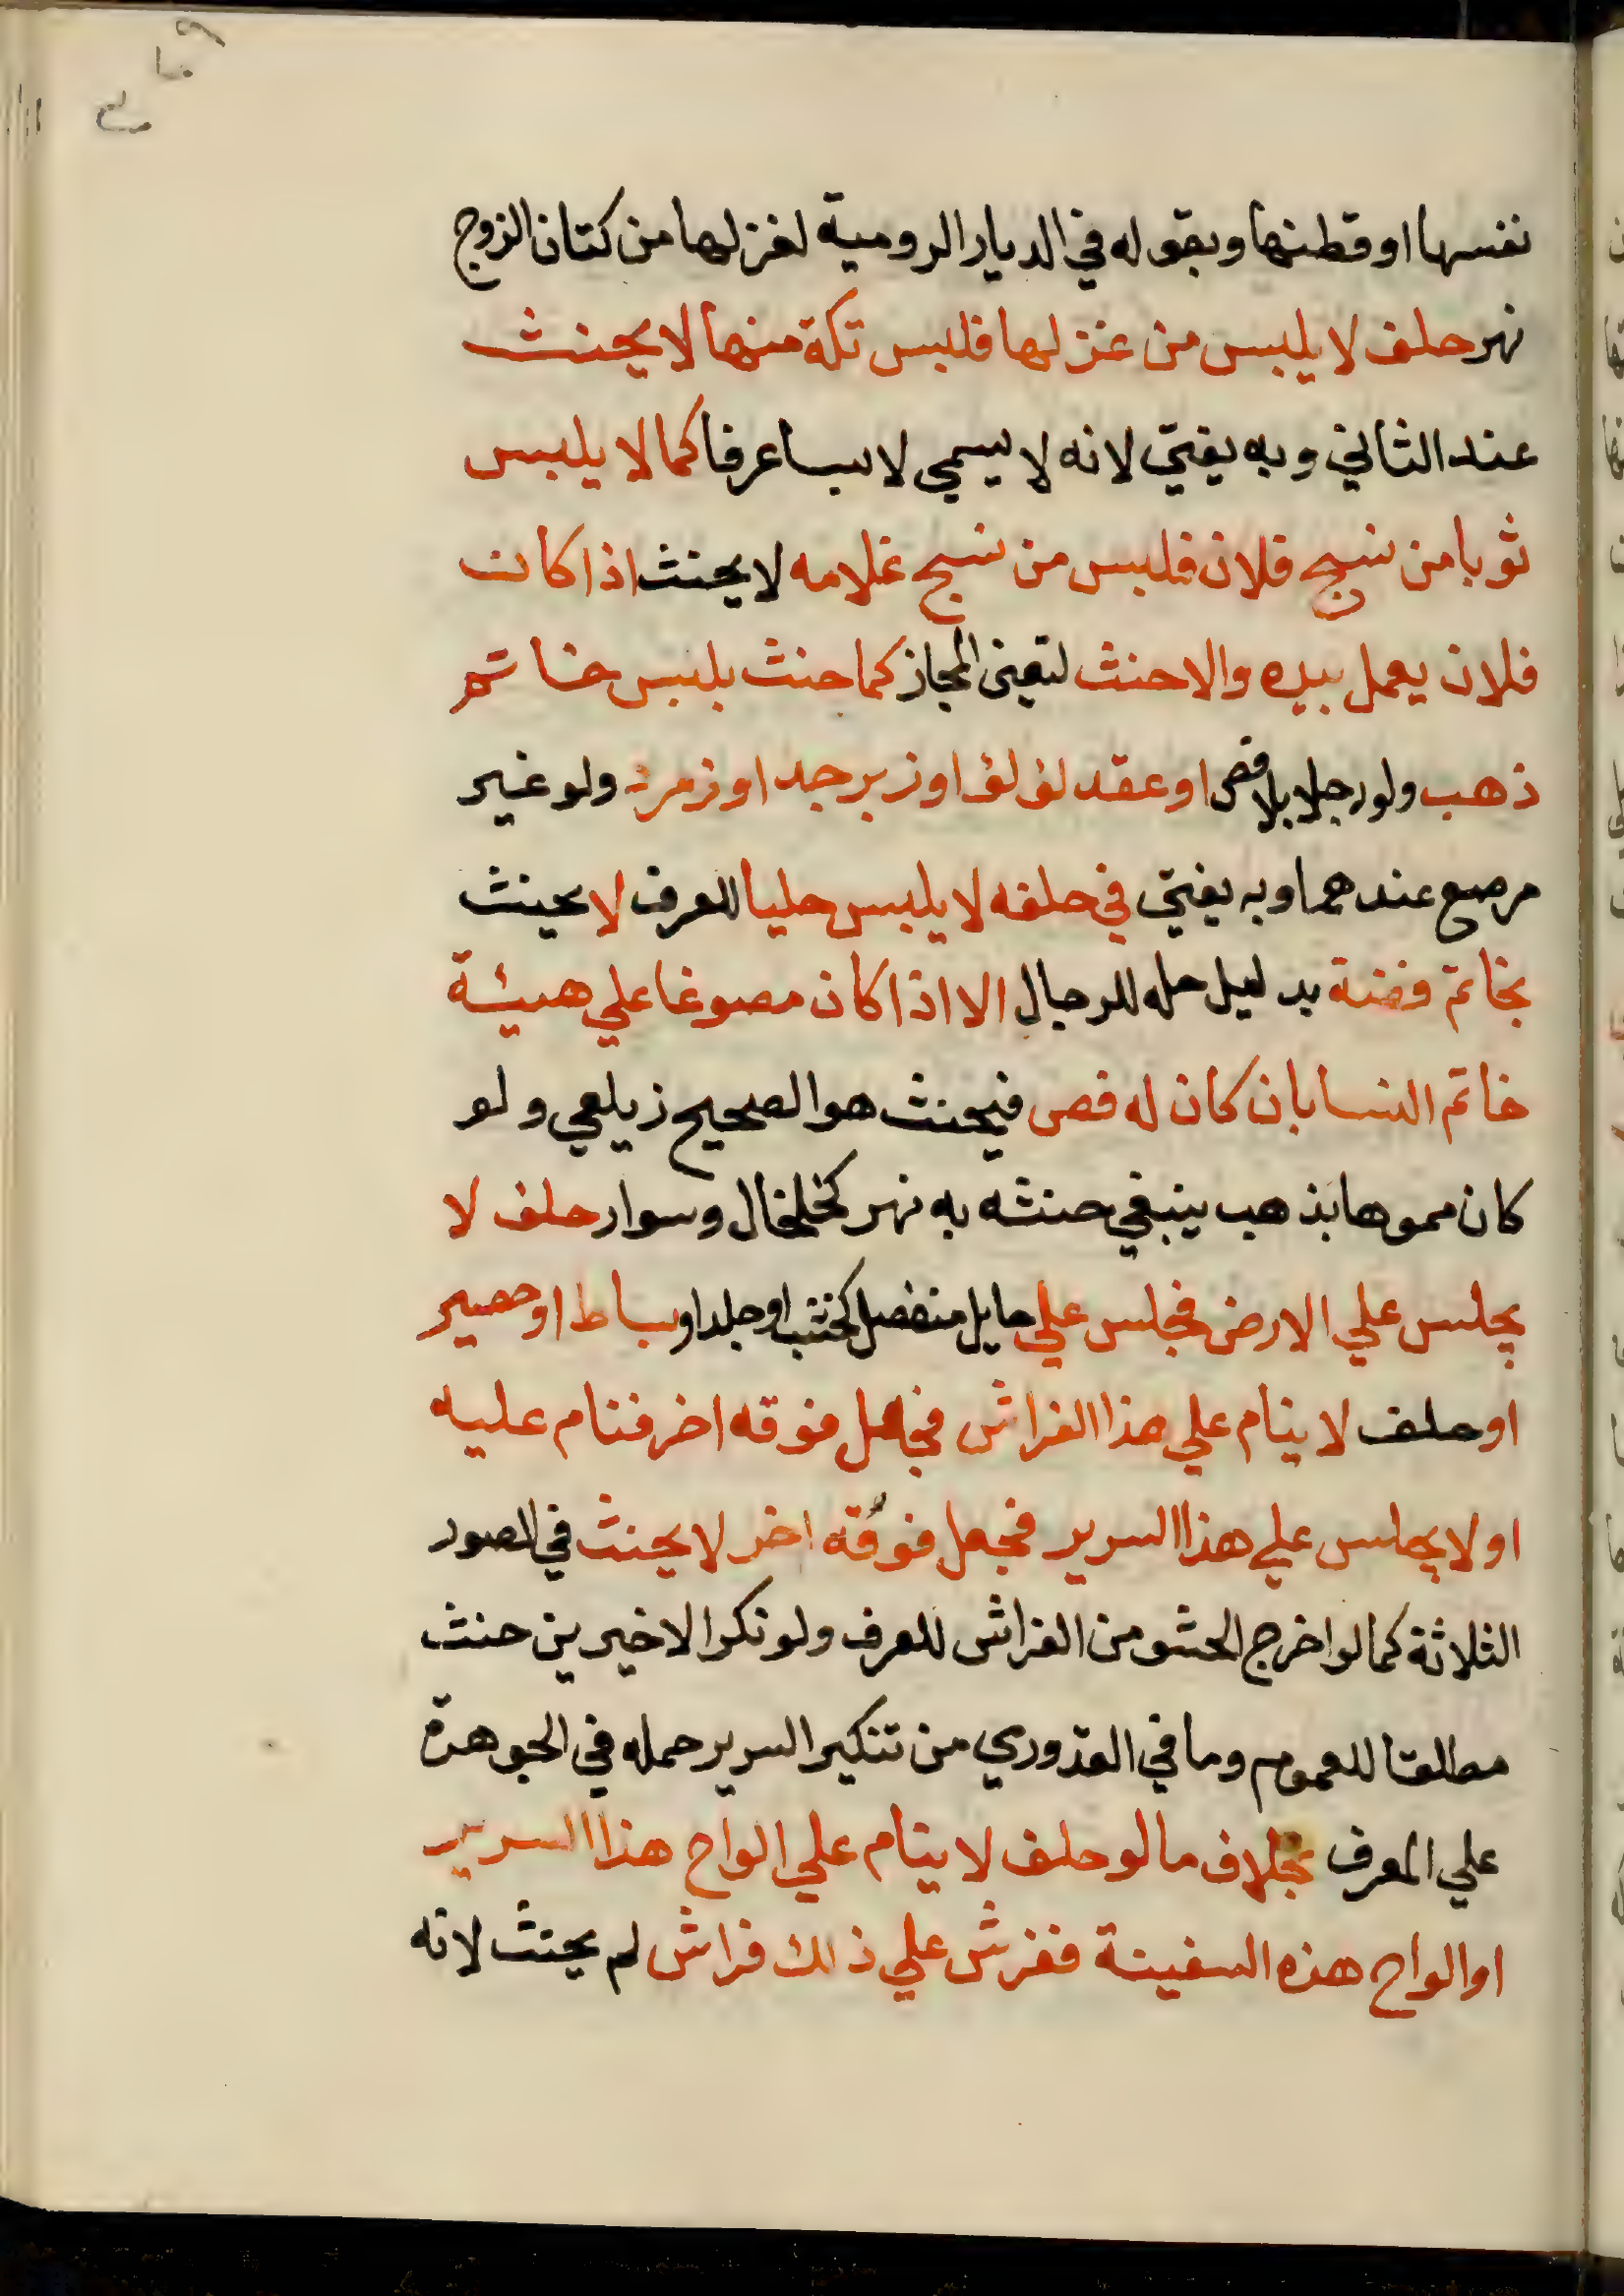 نفسها او قطنها وبقوله في الديار الرومية لغزلها من كتان الزوج
نهر حلف لا يلبس من غزلها فلبس تكة منها لا يحنث
عند الثاني وبه يفتي لانه لا يسمي لابسا عرفا كما لا يلبس
ثوبا من نسج فلان فلبس من نسج غلامه لا يحنث اذا كان
فلان يعمل بيده والا حنث لتعين المجاز كما حنث بلبس خاتم
ذهب ولو رجلا بلا فص او عقد لؤلؤ او زبرجد او زمرذ ولو غير
مرصع عندهما وبه يفتي في حلفه لا يلبس حليا للعرف لا يحنث
بخاتم فضة بدليل حله للرجال الا اذا كان مصوغا علي هيئة
خاتم النسا بان كان له فص فيحنث هو الصحيح زيلعي ولو
كان مموها بذهب ينبغي حنثه به نهر كخلخال وسوار حلف لا
يجلس علي الارض فجلس علي حايل منفصل كخشب او جلد او بساط او حصير
او حلف لا ينام علي هذا الفراش فجعل فوقه اخر فنام عليه
او لا يجلس علي هذا السرير فجعل فوقه اخر لا يحنث في الصور
الثلاثة كما لو اخرج الحشو من الفراش للعرف ولو نكر الاخيرين حنث
مطلقا للعموم وما في القدوري من تنكير السرير حمله في الجوهرة
علي المعرف بخلاف ما لو حلف لا ينام علي الواح هذا السرير
او الواح هذه السفينة ففرش علي ذلك فراش لم يحنث لانه